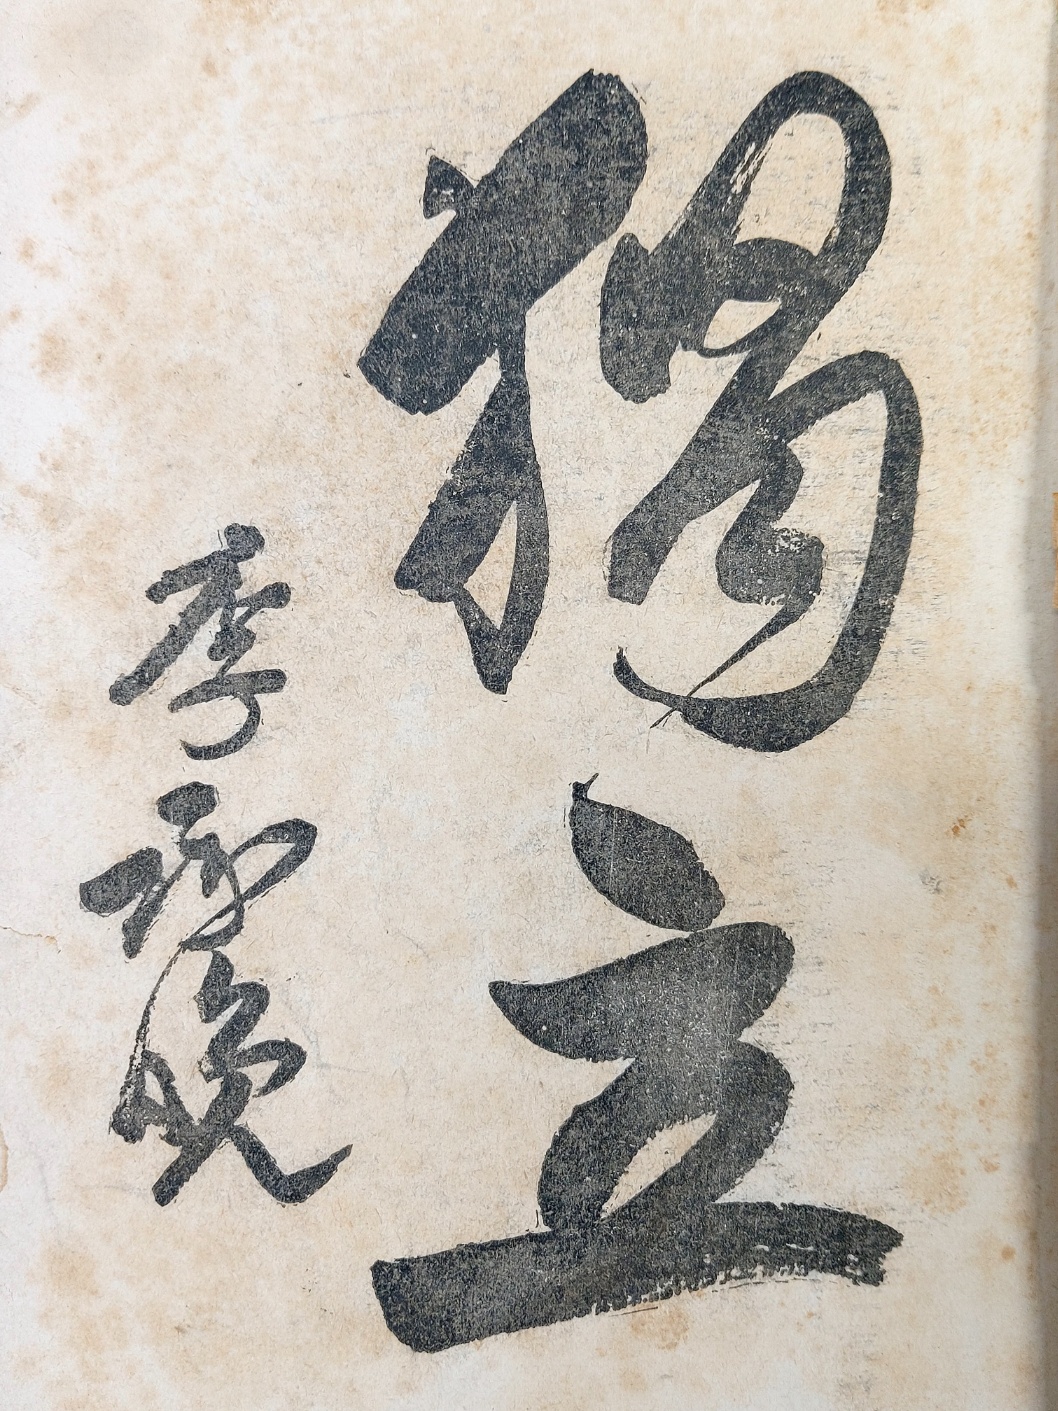 獨立
李承晚